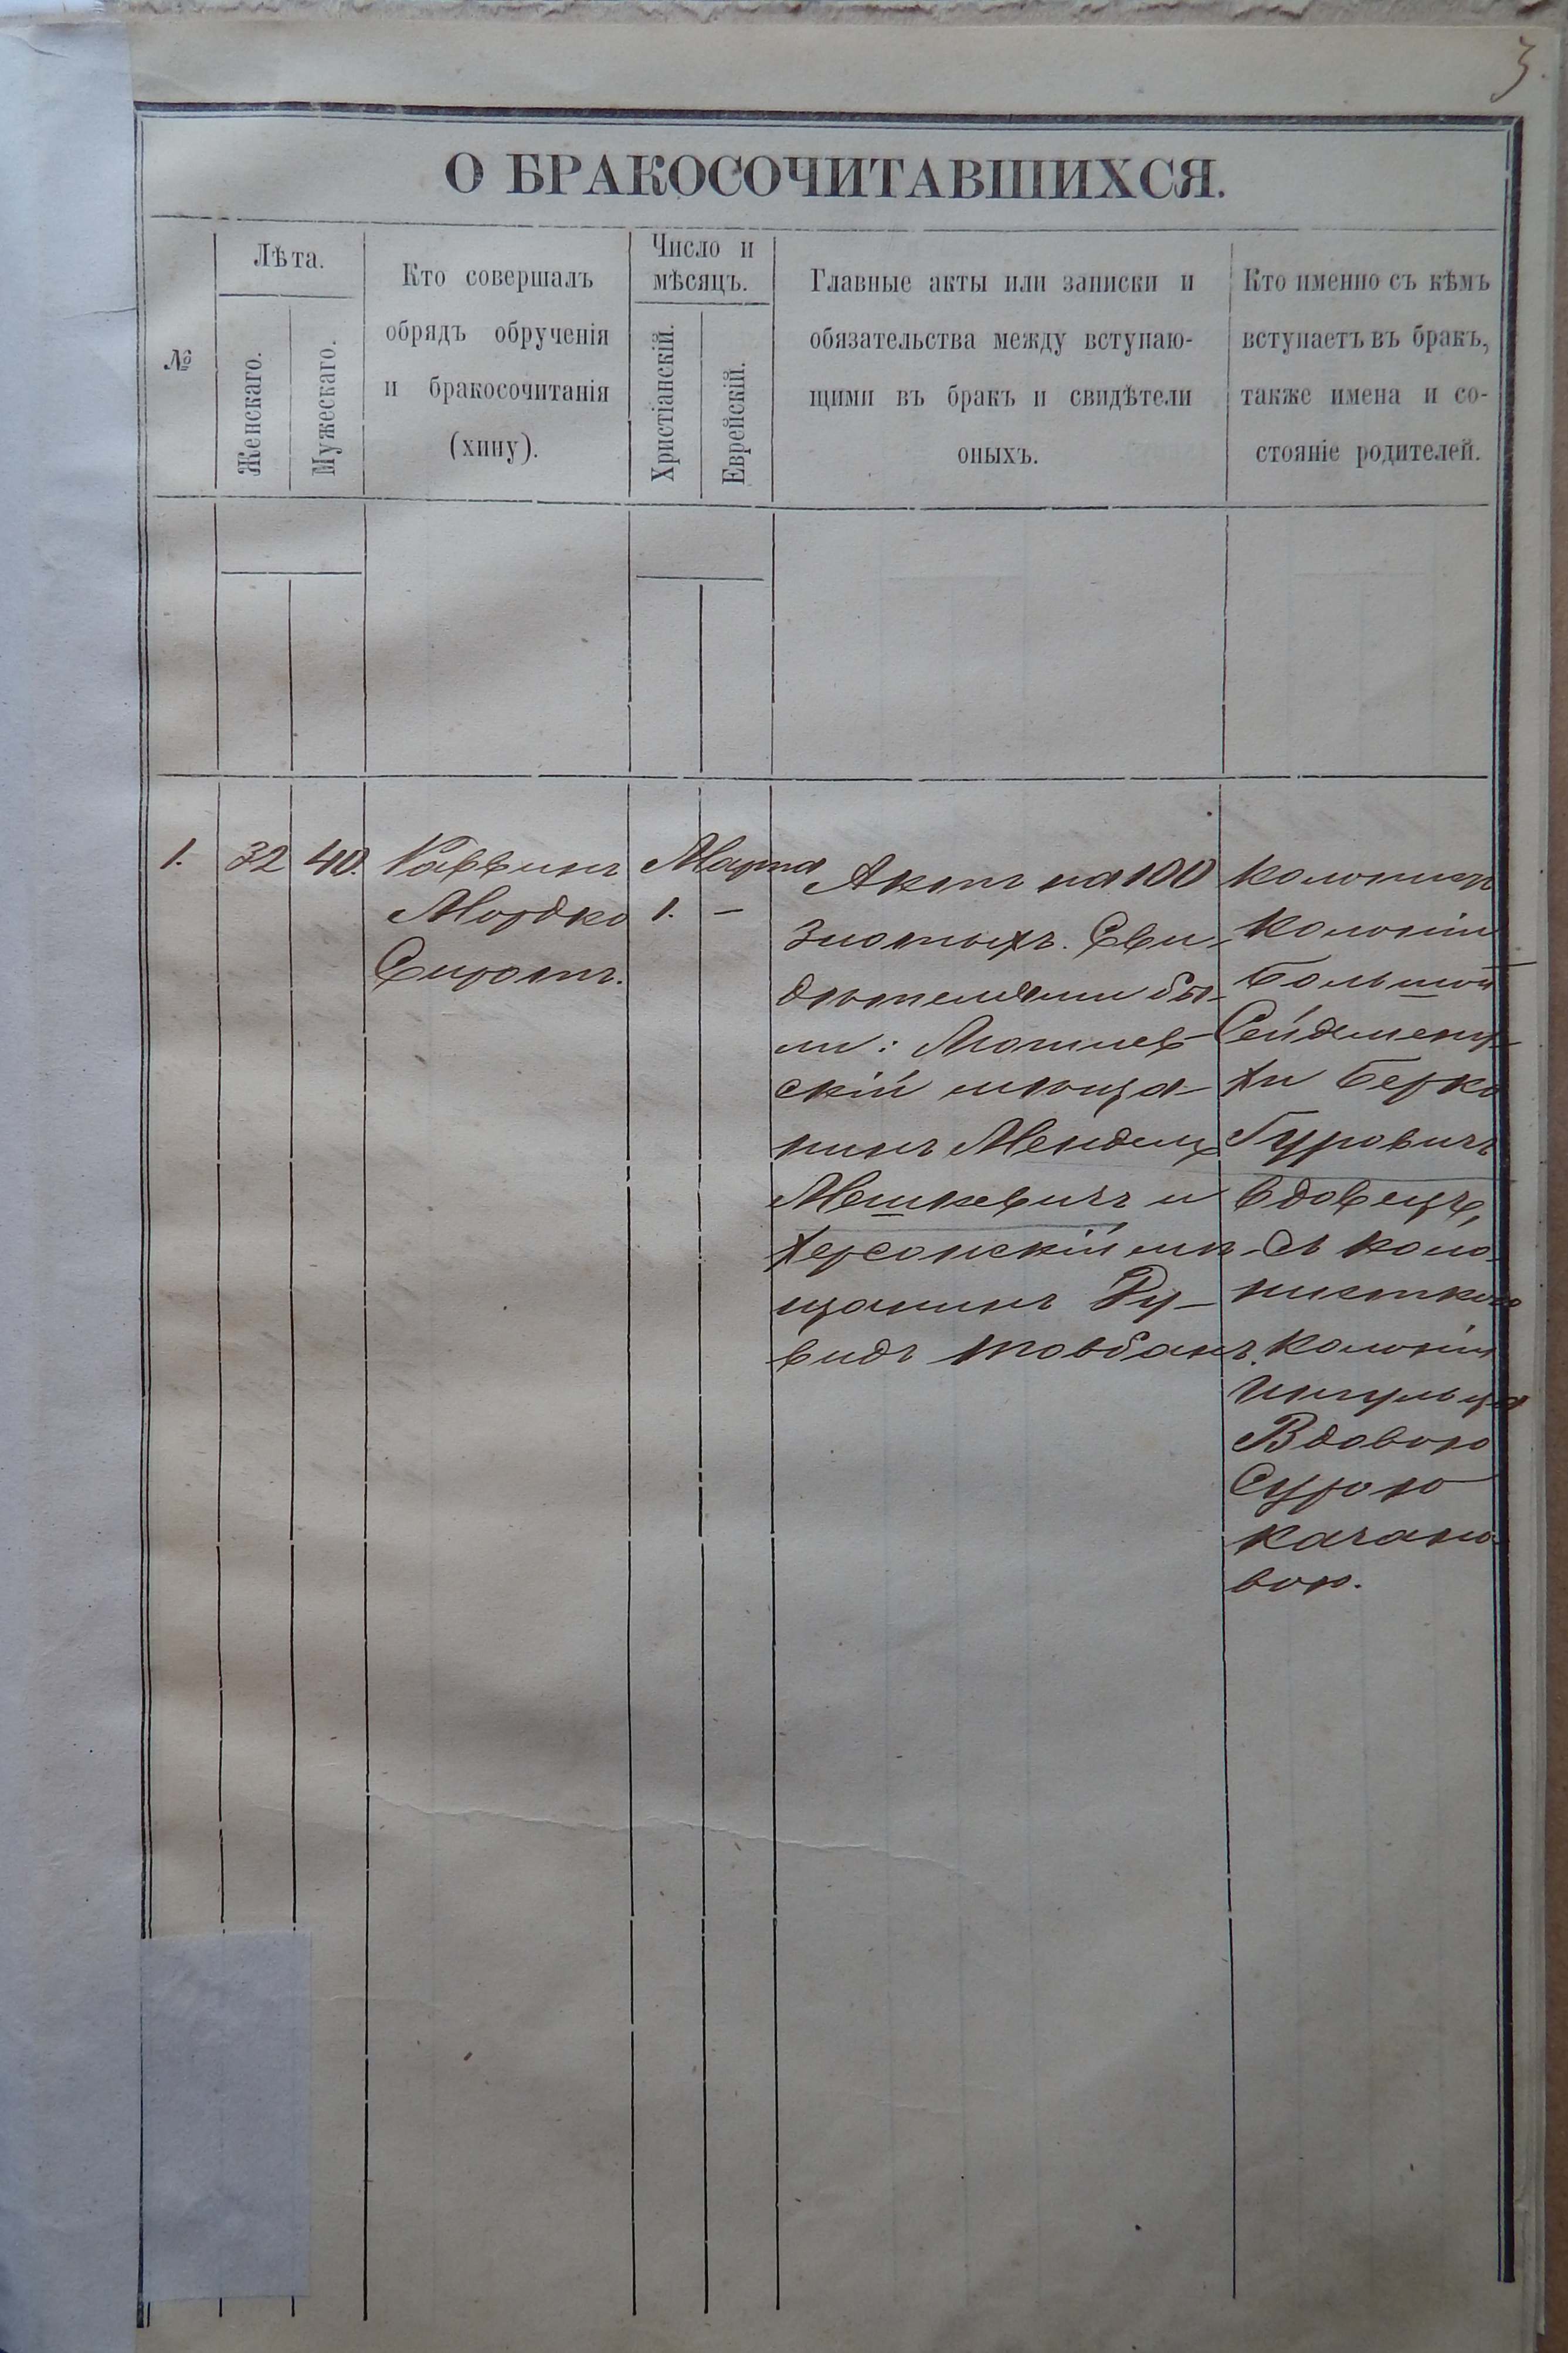 3.
О БРАКОСОЧИТАВШИХСЯ.
№
Лѣта.
Женскаго.
Мужескаго.
Кто совершалъ
обрядъ обрученія
и бракосочитанія
(хипу).
Число и
мѣсяцъ.
Христіанскій.
Еврейскій.
Главные акты или записки и
обязательства между вступаю-
щими въ бракъ и свидѣтели
оныхъ.
Кто именно съ кѣмъ
вступаетъ въ бракъ,
также имена и со-
стояніе родителей.
1.
32
40.
Раввинъ
Мордко
Сиротъ.
Марта
1. —
Актъ на 100
злотыхъ. Сви-
дѣтелями бы-
ли: Могилев-
скій мѣща-
нинъ Мендель
Мешкевичъ и
Херсонскій мѣ-
щанинъ Ру-
видъ Товбанъ.
Колонистъ
Колоніи
Большой
Сейдемену-
хи Берко
Гуровичъ
вдовецъ,
съ коло-
нисткою
колоніи
Ингульца
Вдовою
Сурою
Качано-
вою.